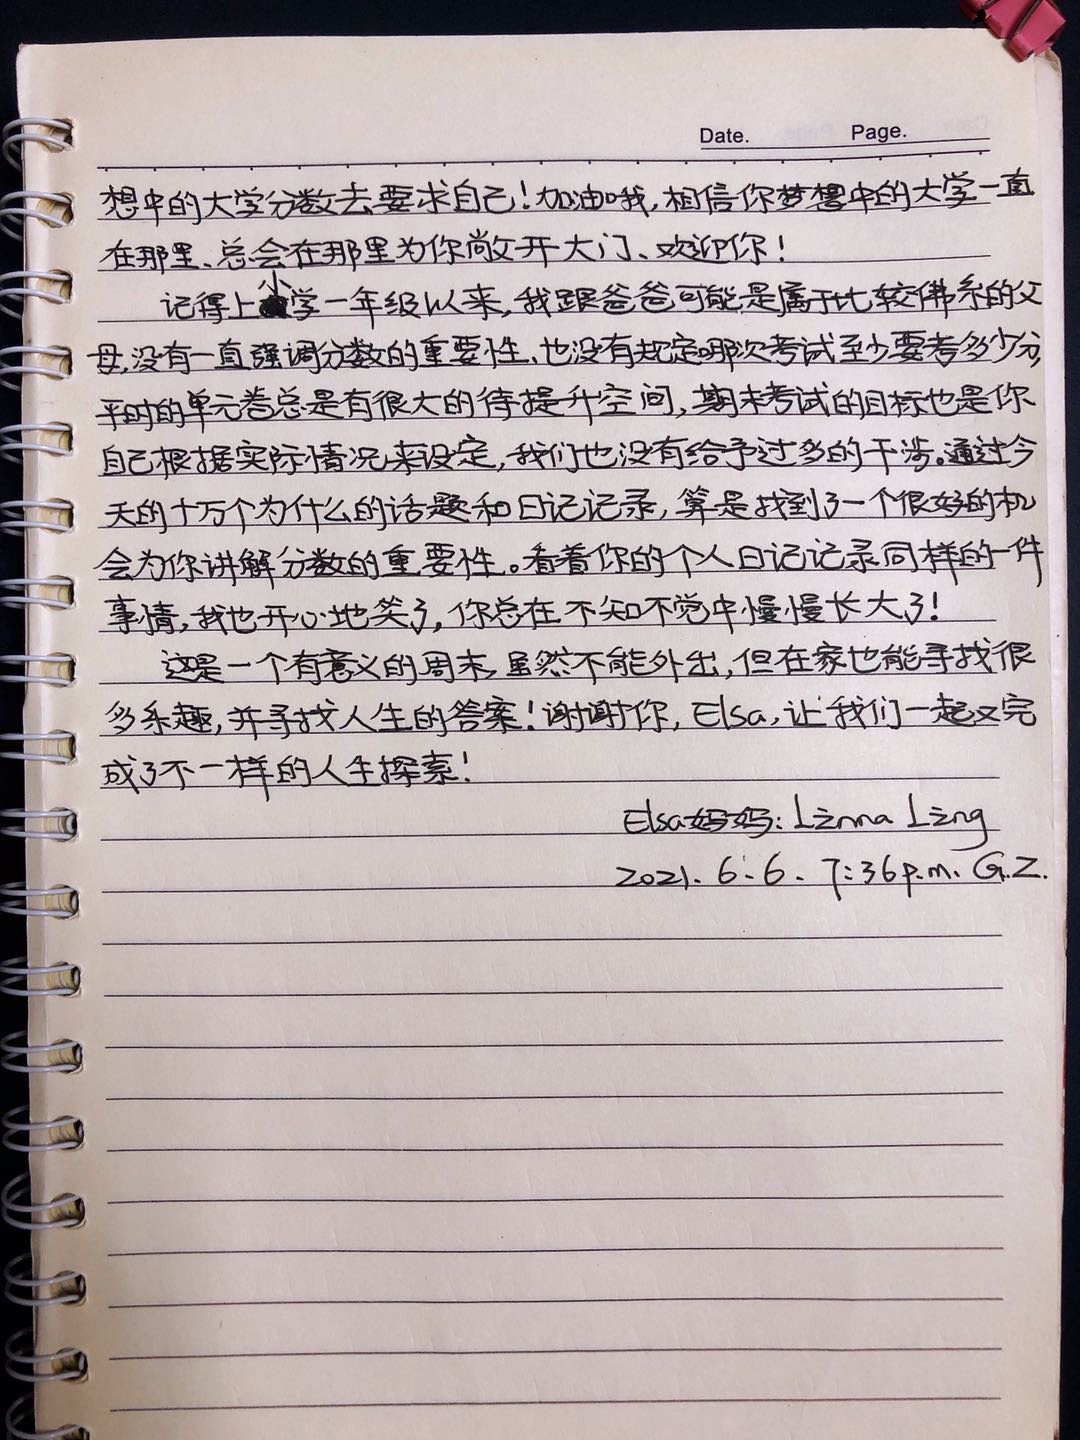 Date. Page.
想中的大学分数去要求自己！加油哦，相信你梦想中的大学一直
在那里、总会在那里为你敞开大门、欢迎你！
记得上小学一年级以来，我跟爸爸可能是属于比较佛系的父
母，没有一直强调分数的重要性、也没有规定哪次考试至少要考多少分，
平时的单元卷总是有很大的待提升空间，期末考试的目标也是你
自己根据实际情况来设定，我们也没有给予过多的干涉。通过今
天的十万个为什么的话题和日记记录，算是找到了一个很好的机
会为你讲解分数的重要性。看着你的个人日记记录同样的一件
事情，我也开心地笑了，你总在不知不觉中慢慢长大了！
这是一个有意义的周末，虽然不能外出，但在家也能寻找很
多乐趣，并寻找人生的答案！谢谢你，Elsa，让我们一起又完
成了不一样的人生探索！
Elsa妈妈：Linna Ling
2021. 6. 6. 7:36p.m. G.Z.